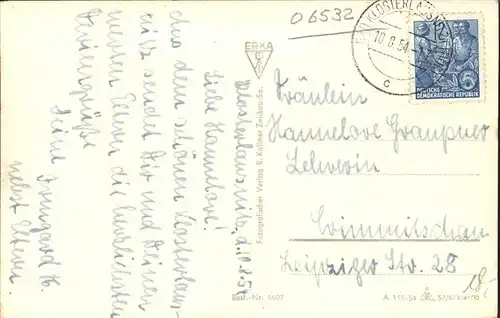 06532
KLOSTERLAUSNITZ
10.8.54
c
DEUTSCHE
DEMOKRATISCHE REPUBLIK
6
ERKA
Klosterlausnitz, d. 10.8.54
Liebe Hannelore!
Aus dem schönen Klosterlaus-
nitz sendet Dir und Deinen
werten Eltern die herzlichsten
Feriengrüße
Deine Irmgard H.
nebst Eltern
Fotografischer Verlag R. Kallmer Zwickau-Sa.
Best.-Nr. 5607
Fräulein
Hannelore Graupner
Lehrerin
Crimmitschau
Leipziger Str. 28
A 115/54
18,-